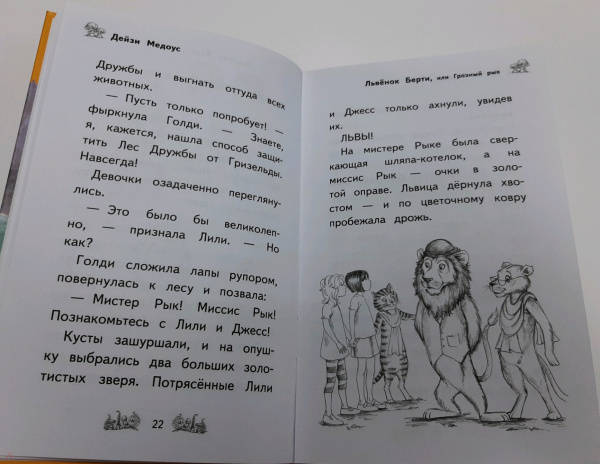 Дейзи Медоус
Дружбы и выгнать оттуда всех
животных.
— Пусть только попробует! —
фыркнула Голди. — Знаете,
я, кажется, нашла способ защи-
тить Лес Дружбы от Гризельды.
Навсегда!
Девочки озадаченно перегляну-
лись.
— Это было бы великолеп-
но, — признала Лили. — Но
как?
Голди сложила лапы рупором,
повернулась к лесу и позвала:
— Мистер Рык! Миссис Рык!
Познакомьтесь с Лили и Джесс!
Кусты зашуршали, и на опуш-
ку выбрались два больших золо-
тистых зверя. Потрясённые Лили
22
Львёнок Берти, или Грозный рык
и Джесс только ахнули, увидев
их.
ЛЬВЫ!
На мистере Рыке была свер-
кающая шляпа-котелок, а на
миссис Рык — очки в золо-
той оправе. Львица дёрнула хво-
стом — и по цветочному ковру
пробежала дрожь.